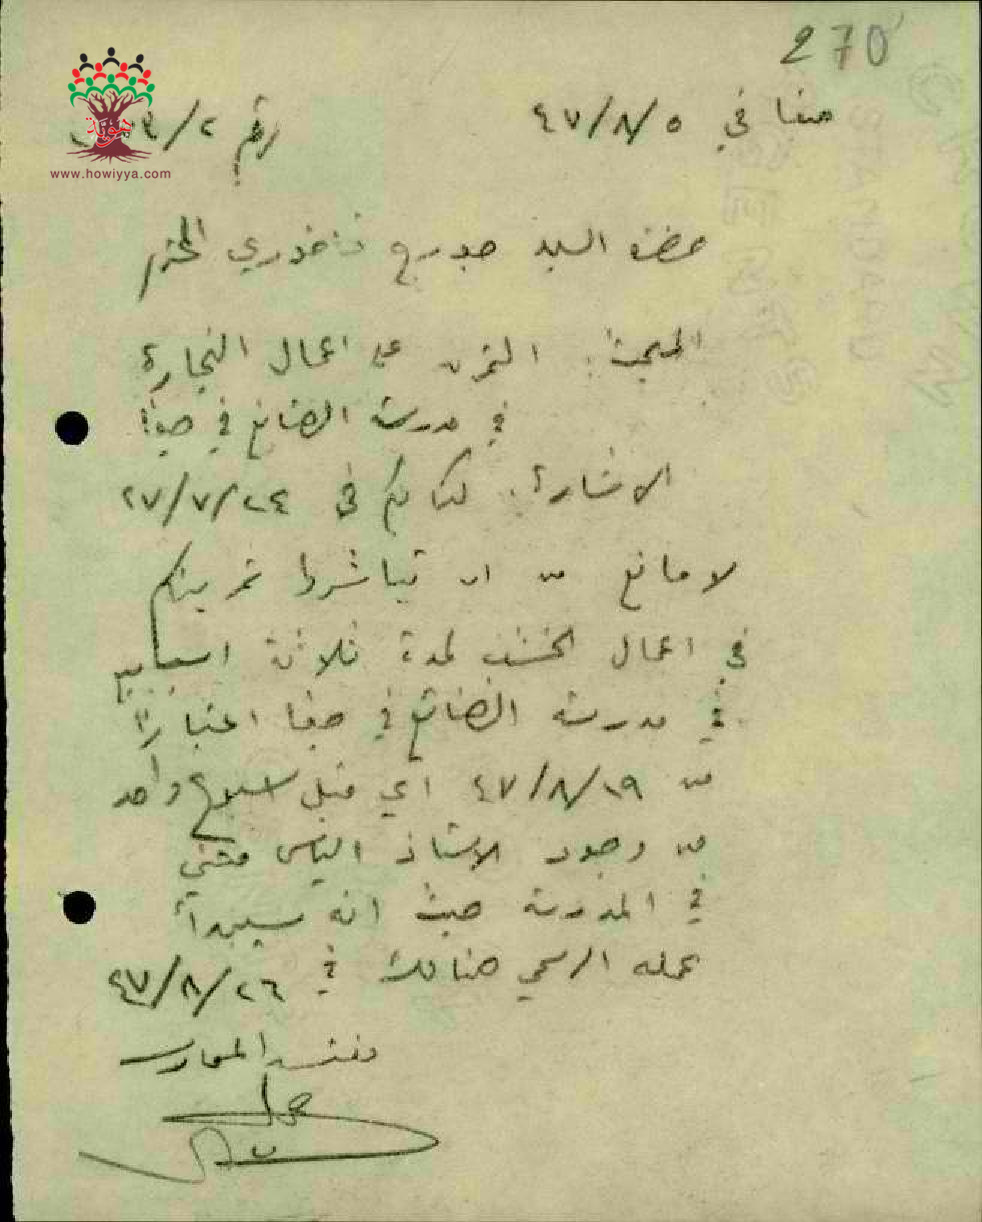 270
حيفا في ٤٧/٨/٥
رقم ٢/٤
هوية
www.howiyya.com
حضرة السيد جورج خوري المحترم
المبحث: التمرن على اعمال النجارة
في مدرسة الصنائع في حيفا
الاشارة: كتابكم في ٢٤/٧/٤٧
لا مانع من ان تباشروا تمرينكم
في اعمال الخشب لمدة ثلاثة اسابيع
في مدرسة الصنائع في حيفا اعتباراً
من ٤٧/٨/١٩ اي قبل اسبوع واحد
من وجود الاستاذ الياس
في المدرسة حيث انه سيبدأ
عمله الرسمي هنالك في ٤٧/٨/٢٦
مفتش المعارف